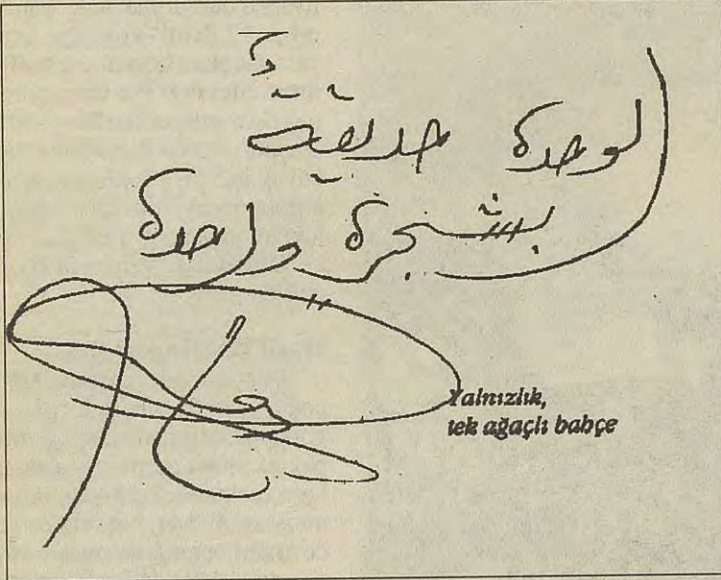 الوحدة حديقةٌ
بشجرة واحدة
Yalnızlık,
tek ağaçlı bahçe